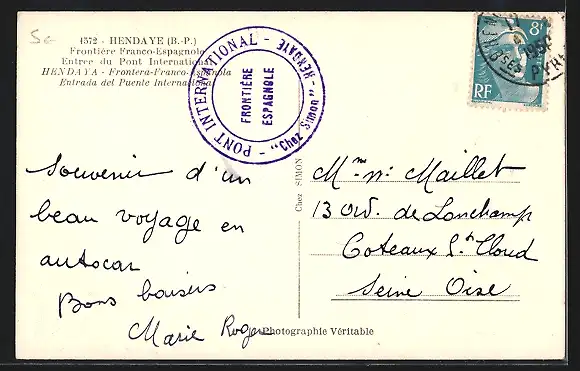 Se
1572 - HENDAYE (B.-P.)
Frontière Franco-Espagnole
Entrée du Pont International
HENDAYA - Frontera-Franco-Española
Entrada del Puente Internacional
PONT INTERNATIONAL - HENDAYE - "Chez Simon" -
FRONTIÈRE
ESPAGNOLE
8F
RF
Chez SIMON
Souvenir d'un
beau voyage en
autocar
Bons baisers
Marie Roger
Photographie Véritable
Mme Maillet
13 av. de Lonchamp
Coteaux St Cloud
Seine Oise